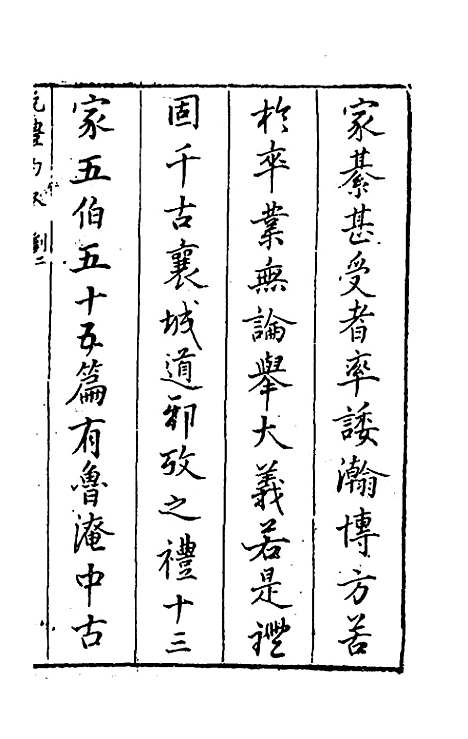 家綦甚受者率諉瀚博方苦
於卒業無論舉大義若是禮
固千古襄城道邪攷之禮十三
家五伯五十五篇有魯淹中古